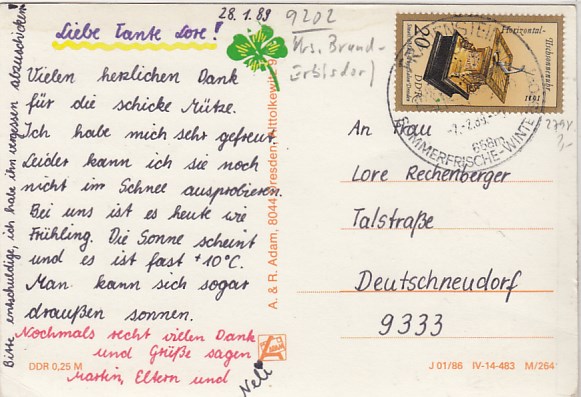 28.1.89
Liebe Tante Lore!
Vielen herzlichen Dank
für die schicke Mütze.
Ich habe mich sehr gefreut.
Leider kann ich sie noch
nicht im Schnee ausprobieren.
Bei uns ist es heute wie
Frühling. Die Sonne scheint
und es ist fast +10°C.
Man kann sich sogar
draußen sonnen.
Nochmals recht vielen Dank
und Grüße sagen
Martin, Eltern und
Nele
Bitte entschuldige, ich habe ihn vergessen abzuschicken
DDR 0,25 M
A. & R. Adam, 8044 Dresden
9202
Krs. Brand-
Erbisdorf
Horizontal-
Tischsonnenuhr
1611
20
DDR
658m
SOMMERFRISCHE-WINTER
An Frau
Lore Rechenberger
Talstraße
Deutschneudorf
9333
J 01/86 IV-14-483 M/264